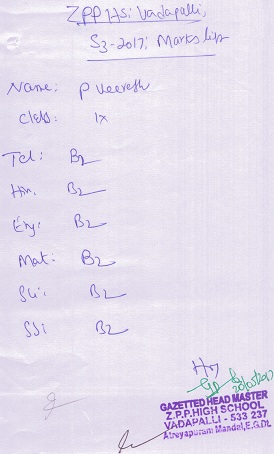 ZPPHS; Vadapalli,
S3-2017; Marks list
Name: P Veeresh
Class: IX
Tel: B2
Hin. B2
Eng: B2
Mat: B2
Sci: B2
SSi B2
20/05/2017
GAZETTED HEAD MASTER
Z.P.P.HIGH SCHOOL
VADAPALLI - 533 237
Atreyapuram Mandal, E.G.Dt.